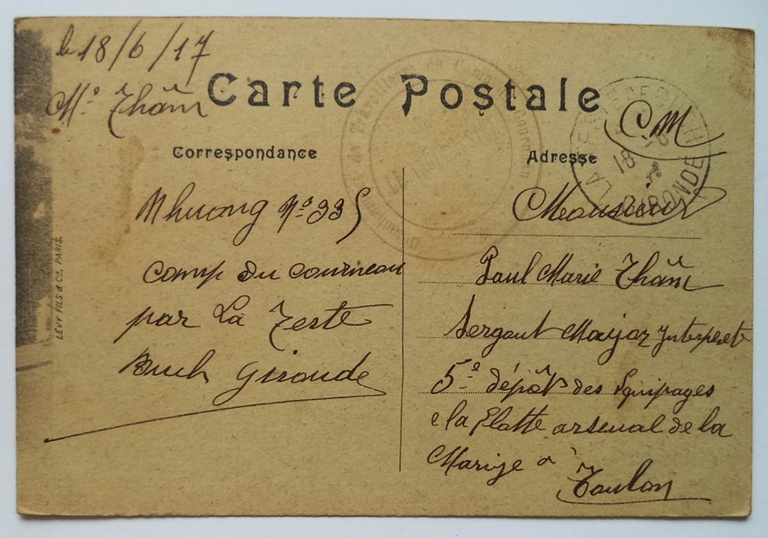 le 18/6/17
Mr Thâm
Carte Postale
CM
Correspondance
Adresse
LA TESTE DE BUCH
18 -6
GIRONDE
Nhuong No 335
camp du courneau
par La Teste
Buch Gironde
LÉVY FILS & Cie, PARIS.
Monsieur
Paul Marie Thâm
Sergent Major Interprete
5e dépôt des Equipages
de la Flotte arsenal de la
Marine à
Toulon